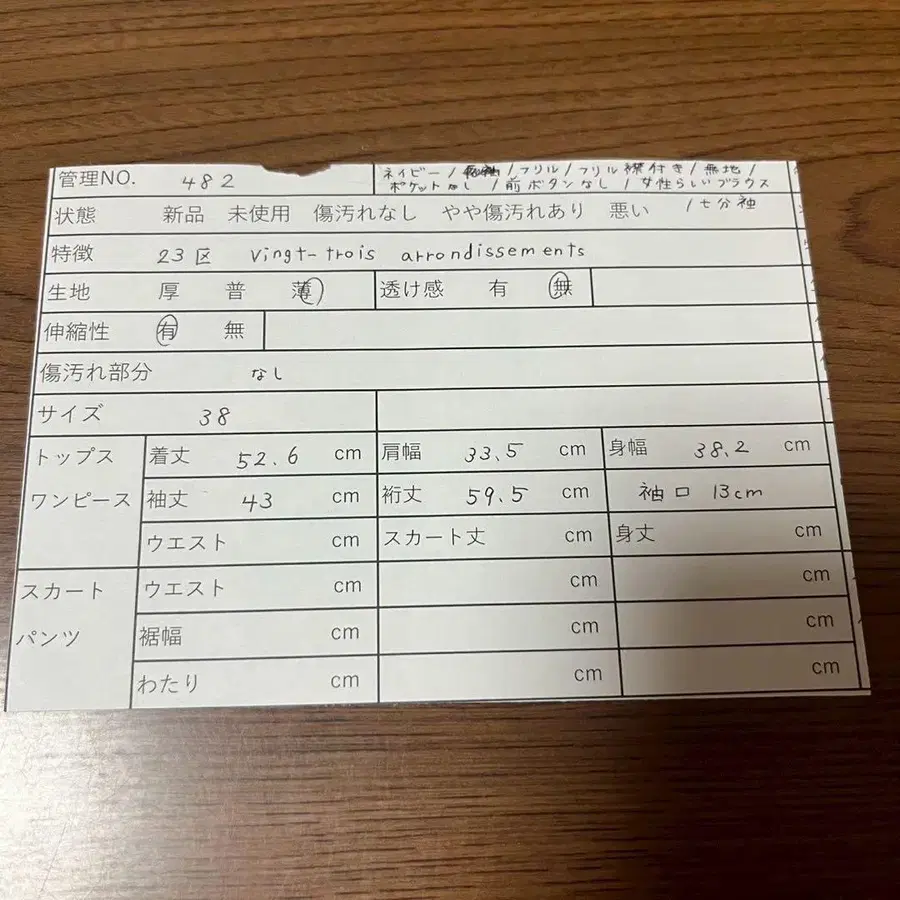 管理NO. 482
ネイビー / / フリル / フリル襟付き / 無地 /
ポケットなし / 前ボタンなし / 女性らしいブラウス
/ 七分袖
状態 新品 未使用 傷汚れなし やや傷汚れあり 悪い
特徴 23区 vingt-trois arrondissements
生地 厚 普 薄 透け感 有 無
伸縮性 有 無
傷汚れ部分 なし
サイズ 38
トップス 着丈 52.6 cm 肩幅 33.5 cm 身幅 38.2 cm
ワンピース 袖丈 43 cm 裄丈 59.5 cm 袖口 13cm
ウエスト cm スカート丈 cm 身丈 cm
スカート ウエスト cm cm cm
パンツ 裾幅 cm cm cm
わたり cm cm cm